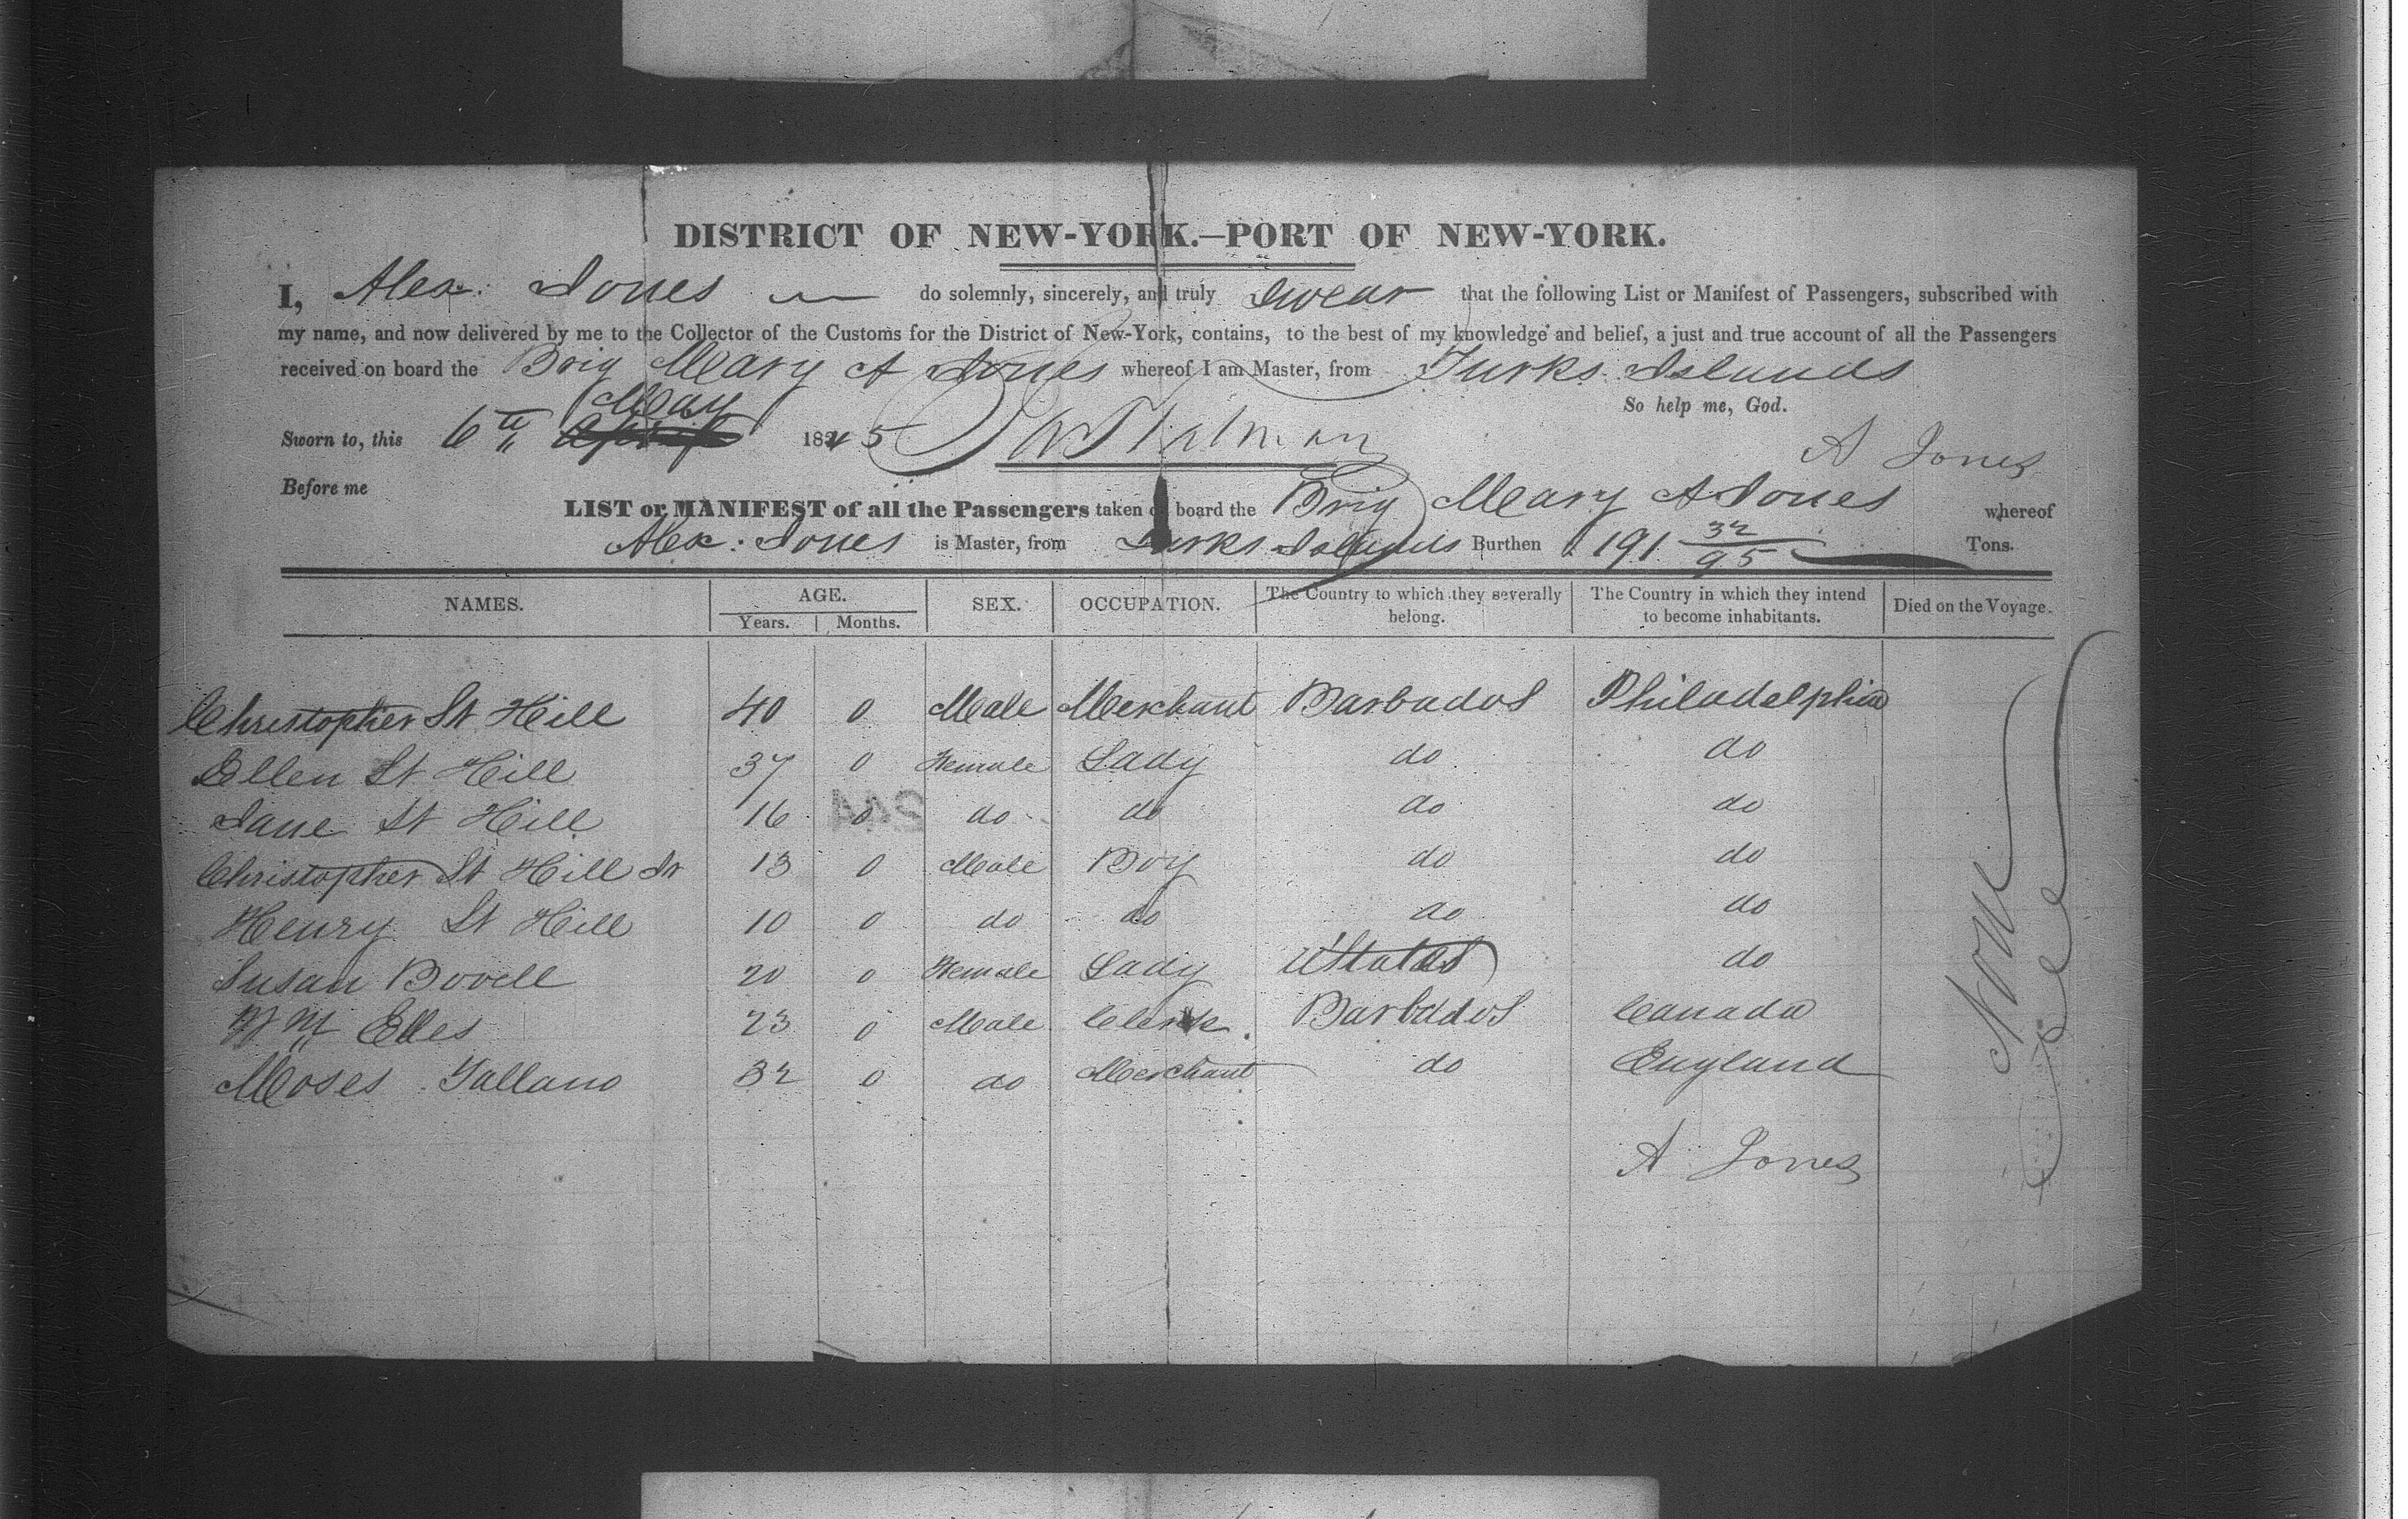 DISTRICT OF NEW-YORK.—PORT OF NEW-YORK.
I, Alex: Jones do solemnly, sincerely, and truly Swear that the following List or Manifest of Passengers, subscribed with
my name, and now delivered by me to the Collector of the Customs for the District of New-York, contains, to the best of my knowledge and belief, a just and true account of all the Passengers
received on board the Brig Mary A Jones whereof I am Master, from Turks Islands
So help me, God.
May
Sworn to, this 6th April 1845
A Jones
Before me
LIST or MANIFEST of all the Passengers taken on board the Brig Mary A Jones whereof
Alex: Jones is Master, from Turks Islands Burthen 191 32/95 Tons.
NAMES. AGE. SEX. OCCUPATION. The Country to which they severally belong. The Country in which they intend to become inhabitants. Died on the Voyage.
Years. Months.
Christopher St Hill 40 0 Male Merchant Barbados Philadelphia
Ellen St Hill 37 0 Female Lady do do
Jane St Hill 16 0 do do do do
244
Christopher St Hill Jr 13 0 Male Boy do do
Henry St Hill 10 0 do do do do
Susan Bovell 20 0 Female Lady U States do
Wm Elles 23 0 Male Clerk Barbados Canada
Moses Tallano 32 0 do Merchant do England
None
A Jones